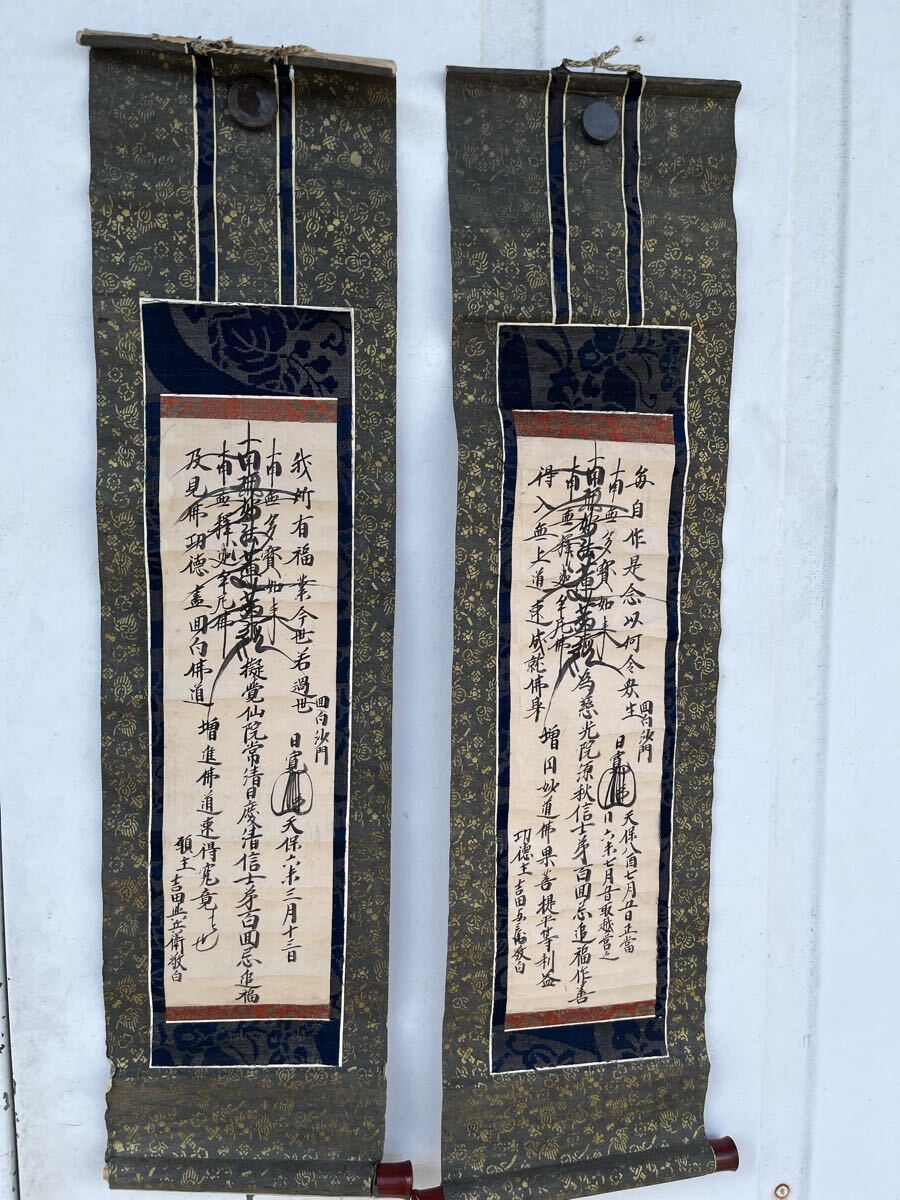 毎自作是念以何令衆生
回向沙門
日寛
天保八酉七月五日正當
六未七月五日取越営之
南無多寶如来
南無妙法蓮華経 為慈光院源秋信士苐百回忌追福作善
南無釋迦牟尼佛
増円妙道佛果菩提平等利益
得入無上道速成就佛身
功徳主 吉田 敬白
我所有福業今世若過世
回向沙門
日寛
天保六未三月十三日
南無多寶如来
南無妙法蓮華経 擬覚仙院常清日慶清信士苐百回忌追福
南無釋迦牟尼佛
及見佛功徳盡回向佛道 増進佛道速得究竟者也
願主 吉田與兵衛敬白